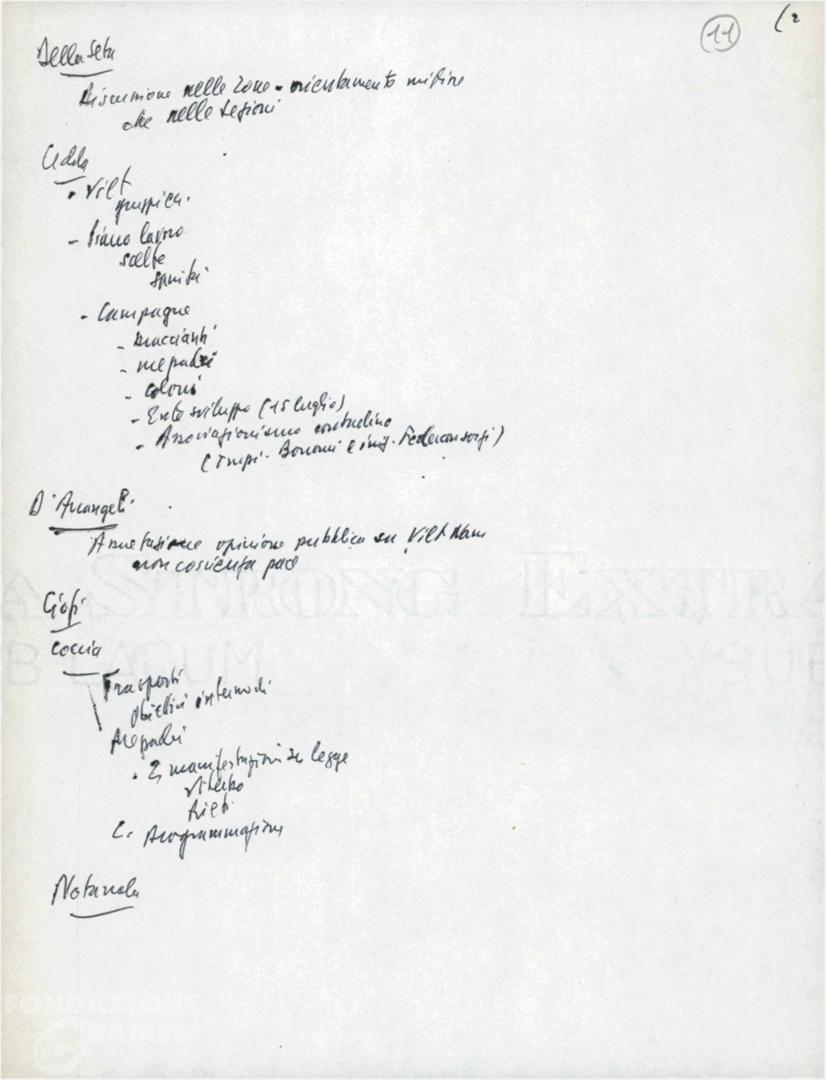 11
(2
Della Seta
Discussione nelle zone - orientamento migliore
che nelle sezioni
Cedda
• Viet
- Piano lavoro
scelte
sanità
- Campagne
- braccianti
- mezzadri
- coloni
- Ente sviluppo (15 luglio)
- Associazionismo contadino
Bonomi e Federconsorzi)
D'Arcangeli
opinione pubblica su Viet Nam
non coscienza pace
Giofi
Coccia
Trasporti
obiettivi intermedi
Mezzadri
• 2 manifestazioni su legge
Viterbo
Rieti
C. Programmazione
Notarnola
FONDAZIONE
GRAMSCI